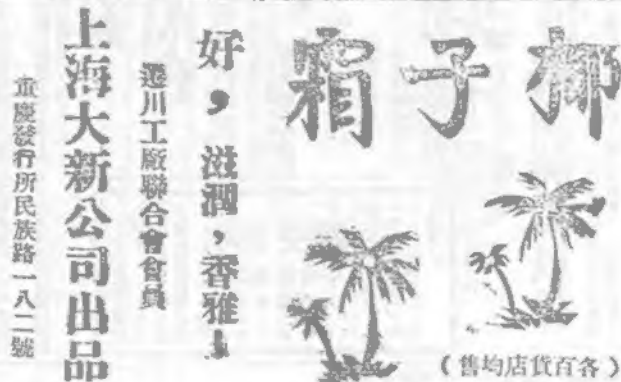 椰子霜
（各百貨店均售）
好，滋潤，香雅！
遷川工廠聯合會會員
上海大新公司出品
重慶發行所民族路一八二號